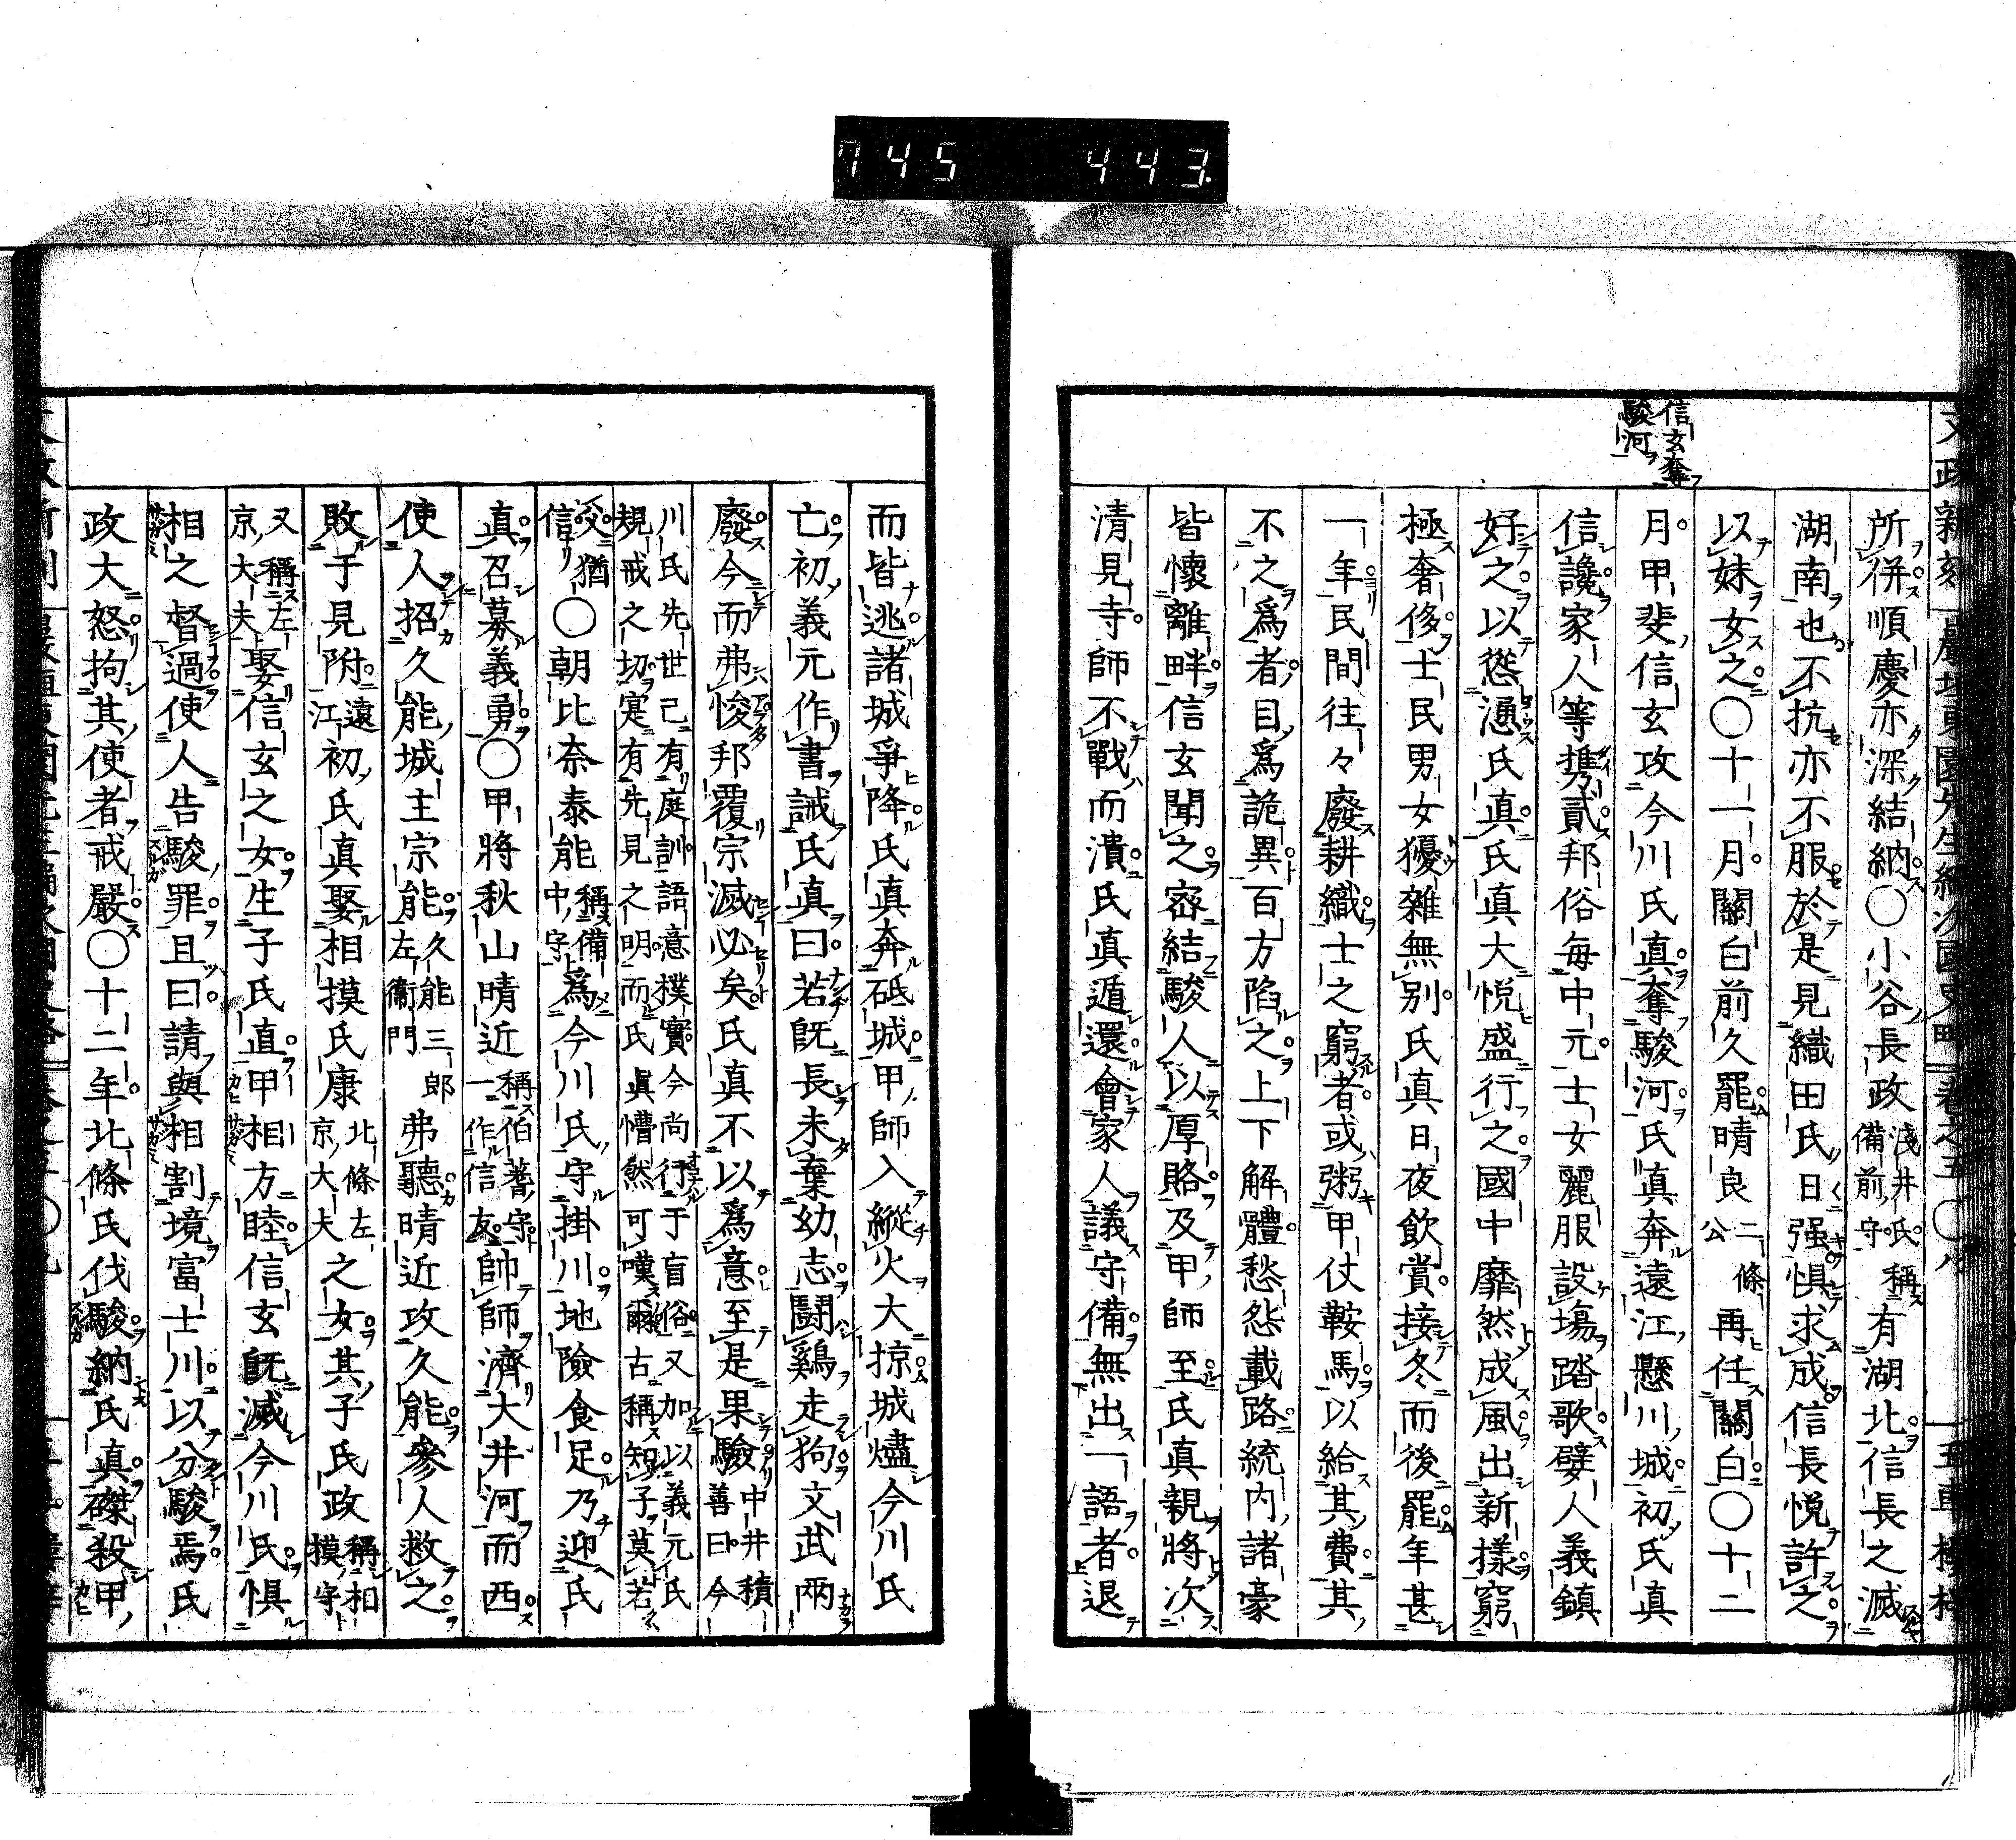 745 443
信玄奪
駿河
所併順慶亦深結納○小谷長政淺井氏稱備前守有湖北信長之滅
湖南也不抗亦不服於是見織田氏日强惧求成信長悦許之
以妹女之○十一月關白前久罷晴良二條公再任關白○十二
月甲斐信玄攻今川氏真奪駿河氏真奔遠江懸川城初氏真
信讒家人等携貳邦俗毎中元士女麗服設場踏歌嬖人義鎮
好之以慫慂氏真氏真大悦盛行之國中靡然成風出新樣窮
極奢侈士民男女獶雜無別氏真日夜飲賞接冬而後罷年甚
一年民間往々廢耕織士之窮者或粥甲仗鞍馬以給其費其
不之爲者目爲詭異百方陷之上下解體愁怨載路統内諸豪
皆懷離畔信玄聞之密結駿人以厚賂及甲師至氏真親將次
清見寺師不戰而潰氏真遁還會家人議守備無出一語者退
而皆逃諸城爭降氏真奔砥城甲師入縱火大掠城燼今川氏
亡初義元作書誡氏真曰若既長未棄幼志鬪鷄走狗文武兩
廢今而弗悛邦覆宗滅必矣氏真不以爲意至是果驗中井積善曰今
川氏先世己有庭訓語意樸實今尚行于盲俗又加以義元氏
規戒之切寔有先見之明而氏眞懵然可嘆爾古稱知子莫若
父猶信○朝比奈泰能稱備中守爲今川氏守掛川地險食足乃迎氏
真召募義勇○甲將秋山晴近稱伯耆守一作信友帥師濟大井河而西
使人招久能城主宗能久能三郎左衞門弗聽晴近攻久能參人救之
敗于見附遠江初氏真娶相摸氏康北條左京大夫之女其子氏政稱相摸守
又稱左京大夫娶信玄之女生子氏直甲相方睦信玄既滅今川氏惧
相之督過使人告駿罪且曰請與相割境富士川以分駿焉氏
政大怒拘其使者戒嚴○十二年北條氏伐駿納氏真磔殺甲